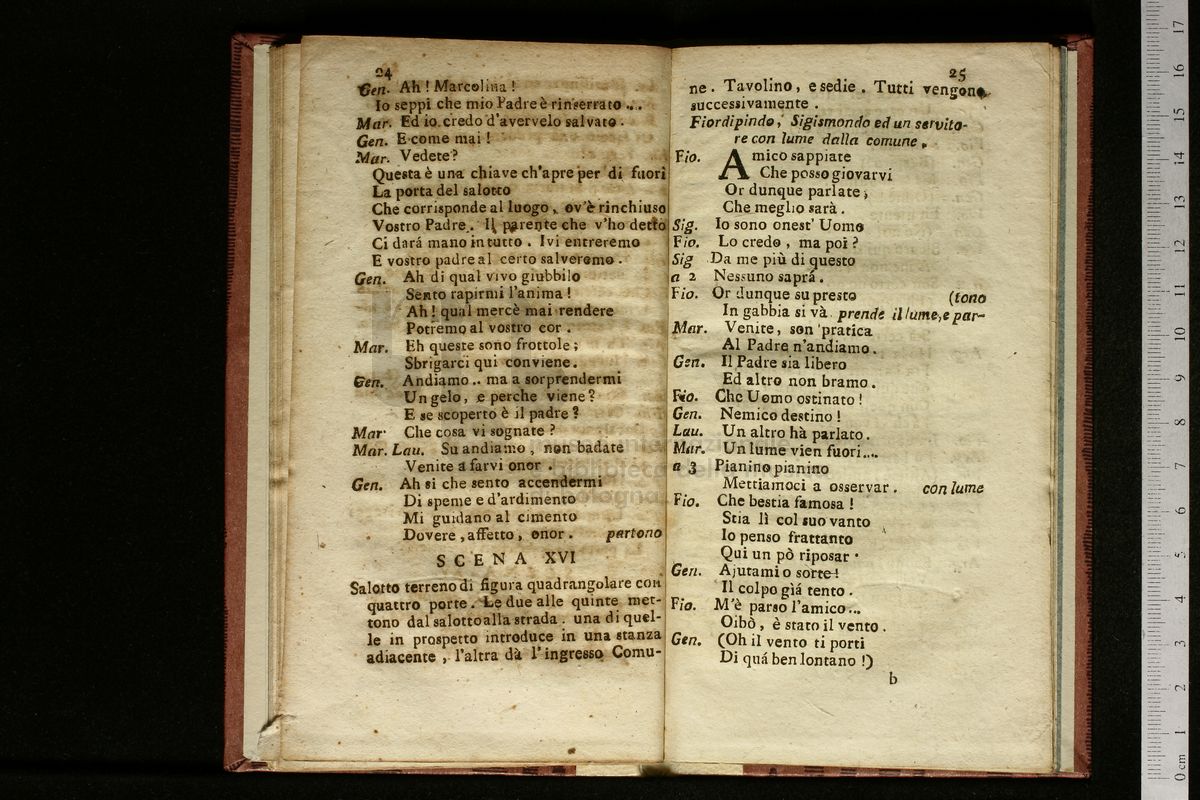 24
Gen. Ah! Marcolina!
Io seppi che mio Padre è rinserrato ...
Mar. Ed io credo d'avervelo salvato.
Gen. E come mai!
Mar. Vedete?
Questa è una chiave ch'apre per di fuori
La porta del salotto
Che corrisponde al luogo, ov'è rinchiuso
Vostro Padre. Il parente che v'ho detto
Ci dará mano in tutto. Ivi entreremo
E vostro padre al certo salveremo.
Gen. Ah di qual vivo giubbilo
Sento rapirmi l'anima!
Ah! qual mercè mai rendere
Potremo al vostro cor.
Mar. Eh queste sono frottole;
Sbrigarci qui conviene.
Gen. Andiamo.. ma a sorprendermi
Un gelo, e perche viene?
E se scoperto è il padre?
Mar. Che cosa vi sognate?
Mar. Lau. Su andiamo, non badate
Venite a farvi onor.
Gen. Ah si che sento accendermi
Di speme e d'ardimento
Mi guidano al cimento
Dovere, affetto, onor. partono
SCENA XVI
Salotto terreno di figura quadrangolare con
quattro porte. Le due alle quinte met-
tono dal salotto alla strada. una di quel-
le in prospetto introduce in una stanza
adiacente, l'altra dà l'ingresso Comu-
25
ne. Tavolino, e sedie. Tutti vengono
successivamente.
Fiordipindo, Sigismondo ed un servito-
re con lume dalla comune.
Fio. Amico sappiate
Che posso giovarvi
Or dunque parlate;
Che meglio sarà.
Sig. Io sono onest' Uomo
Fio. Lo credo, ma poi?
Sig Da me più di questo
a 2 Nessuno saprá.
Fio. Or dunque su presto (tono
In gabbia si và prende il lume, e par-
Mar. Venite, son pratica
Al Padre n'andiamo.
Gen. Il Padre sia libero
Ed altro non bramo.
Fio. Che Uomo ostinato!
Gen. Nemico destino!
Lau. Un altro hà parlato.
Mar. Un lume vien fuori....
a 3 Pianino pianino
Mettiamoci a osservar. con lume
Fio. Che bestia famosa!
Stia lì col suo vanto
Io penso frattanto
Qui un pò riposar.
Gen. Ajutami o sorte!
Il colpo giá tento.
Fio. M'è parso l'amico...
Oibò, è stato il vento.
Gen. (Oh il vento ti porti
Di quá ben lontano!)
b